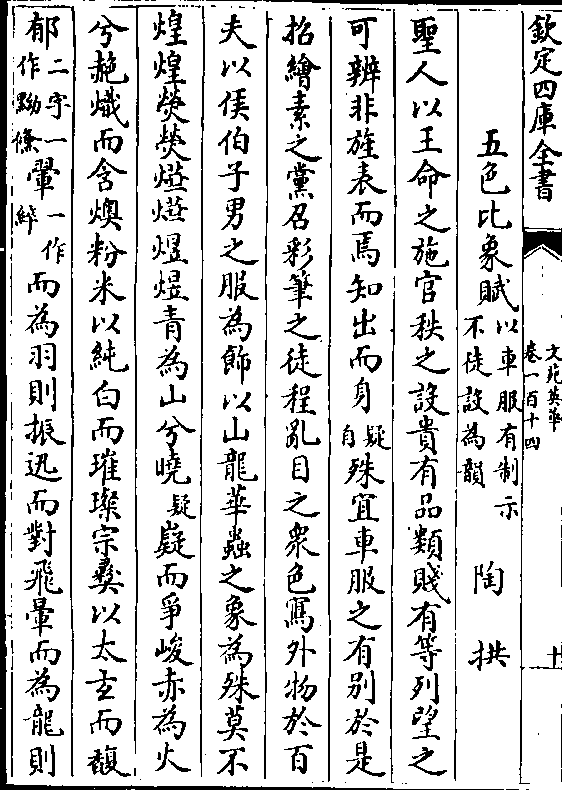 欽定四庫全書
文苑英華
卷一百十四
十
五色比象賦以車服有制示不徒設為韻 陶拱
聖人以王命之施官秩之設貴有品類賤有等列望之
可辨非旌表而焉知出而身疑自殊宜車服之有别於是
招繪素之黨召彩筆之徒程亂目之衆色寫外物於百
夫以侯伯子男之服為飾以山龍華蟲之象為殊莫不
煌煌熒熒㷿㷿煜煜青為山兮曉疑嶷而爭峻赤為火
兮赩熾而含燠粉米以純白而璀璨宗彞以太玄而馥
郁二字一作黝儵翬一作綷而為羽則振迅而對飛暈而為龍則